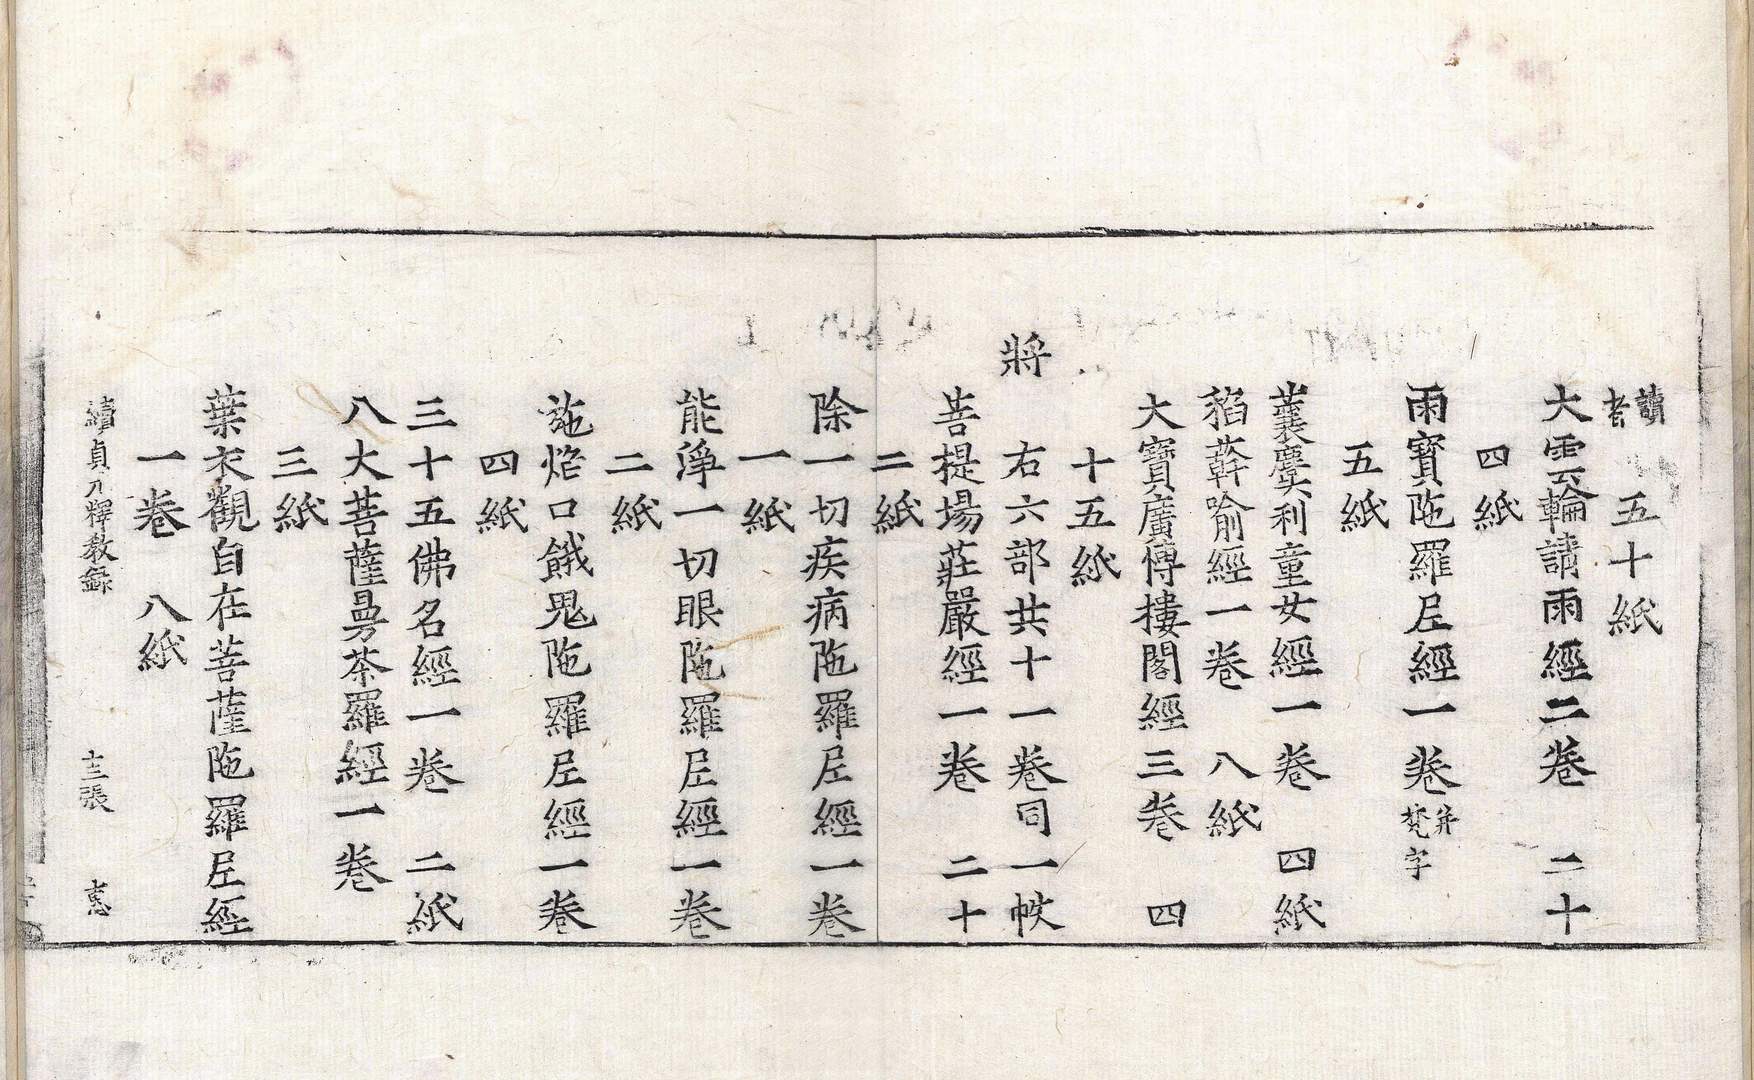 讀者 五十紙
大雲輪請雨經二卷 二十
四紙
雨寶陁羅尼經一卷 并梵字
五紙
蘘麌利童女經一卷 四紙
稻𦼮喻經一卷 八紙
大寶廣博樓閣經三卷 四
十五紙
將
右六部共十一卷同一帙
菩提場莊嚴經一卷 二十
二紙
除一切疾病陁羅尼經一卷
一紙
能淨一切眼陁羅尼經一卷
二紙
施焰口餓鬼陁羅尼經一卷
四紙
三十五佛名經一卷 二紙
八大菩薩曼茶羅經一卷
三紙
葉衣觀自在菩薩陁羅尼經
一卷 八紙
續貞元釋教録 十三張